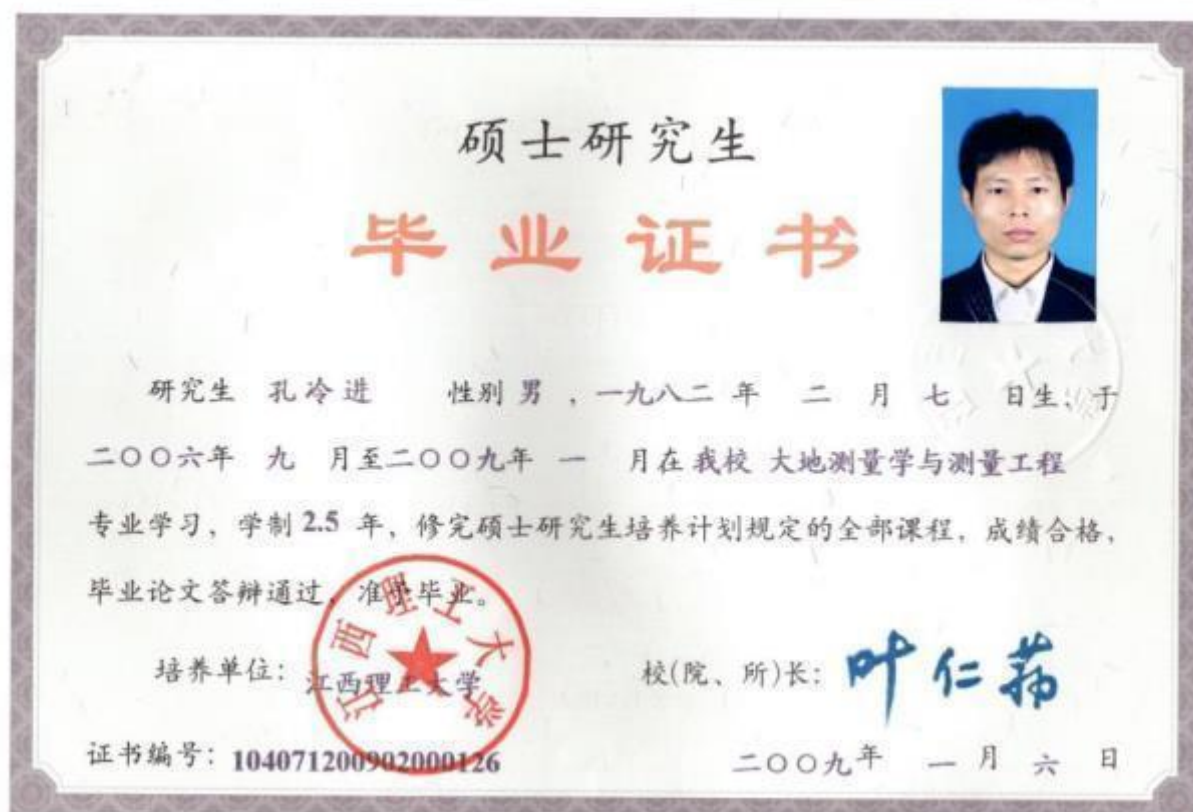 硕士研究生
毕业证书
研究生 孔冷进 性别 男 ，一九八二 年 二 月 七 日生、于
二〇〇六年 九 月至二〇〇九年 一 月在 我校 大地测量学与测量工程
专业学习，学制 2.5 年，修完硕士研究生培养计划规定的全部课程，成绩合格，
毕业论文答辩通过，准予毕业。
江西理工大学
培养单位：江西理工大学
校(院、所)长：叶仁荪
证书编号：104071200902000126
二〇〇九年 一 月 六 日